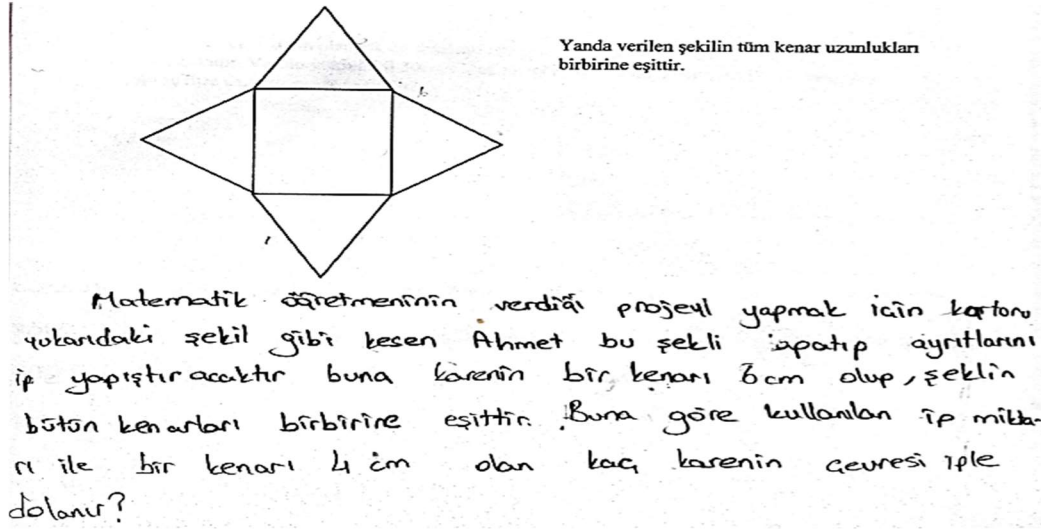 Yanda verilen şekilin tüm kenar uzunlukları
birbirine eşittir.
b
Matematik öğretmeninin verdiği projeyi yapmak için kartonu
yukarıdaki şekil gibi kesen Ahmet bu şekli kapatıp ayrıtlarını
ip yapıştıracaktır buna karenin bir kenarı 6 cm olup, şeklin
bütün kenarları birbirine eşittir. Buna göre kullanılan ip mikta-
rı ile bir kenarı 4 cm olan kaç karenin çevresi iple
dolanır?